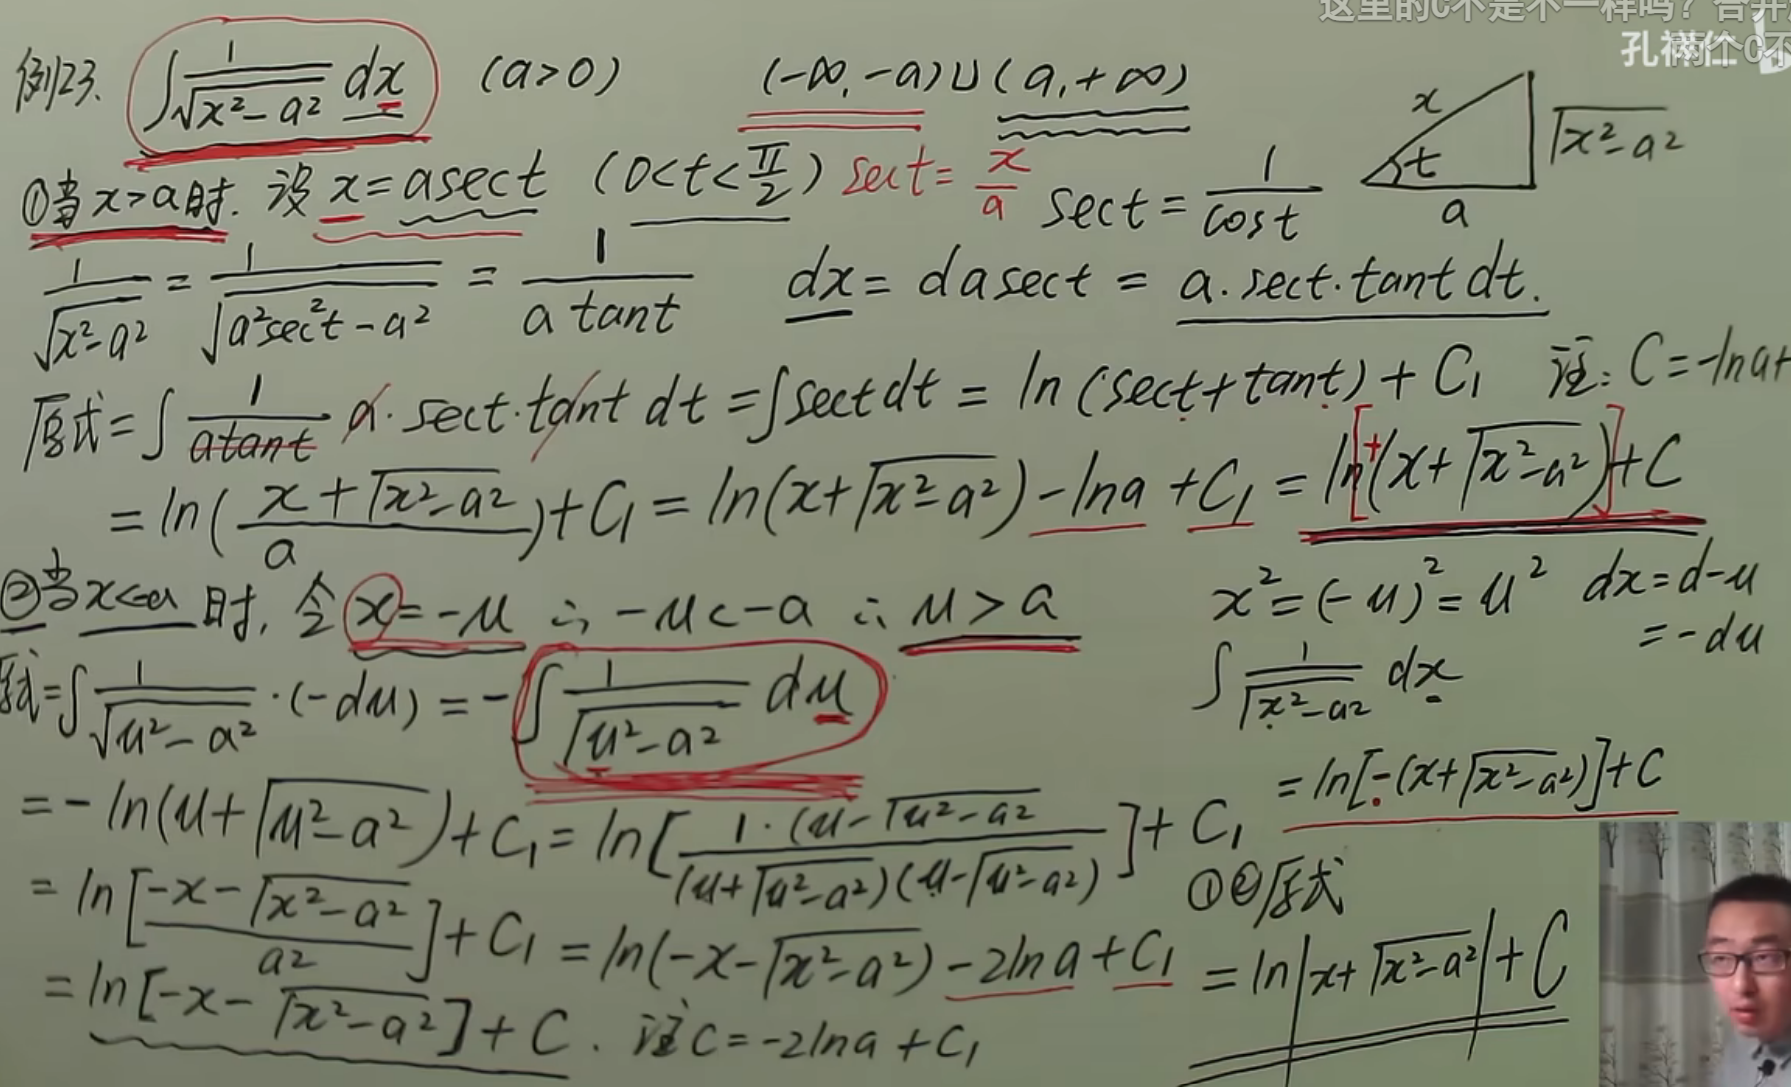 这里的C不是不一样吗？合并
孔祥仁 两个C不
例23. ∫ 1/√(x²-a²) dx (a>0) (-∞,-a)∪(a,+∞)
x t a √(x²-a²)
①当x>a时. 设 x=asect (0<t<π/2) sect=x/a sect=1/cost
1/√(x²-a²) = 1/√(a²sec²t-a²) = 1/(a tant) dx=dasect=a·sect·tantdt.
原式=∫ 1/(atant) a·sect·tant dt=∫sectdt=ln(sect+tant)+C₁ 注:C=-lna+
=ln((x+√(x²-a²))/a)+C₁=ln(x+√(x²-a²))-lna+C₁=ln[+(x+√(x²-a²))]+C
②当x<-a时, 令x=-u ∴-u<-a ∴u>a
x²=(-u)²=u² dx=d-u
=-du
原式=∫ 1/√(u²-a²)·(-du)=-∫ 1/√(u²-a²) du
∫ 1/√(x²-a²) dx
=ln[-(x+√(x²-a²))]+C
=-ln(u+√(u²-a²))+C₁=ln[1·(u-√(u²-a²)/(u+√(u²-a²))(u-√(u²-a²))]+C₁
①②原式
=ln[(-x-√(x²-a²))/a²]+C₁=ln(-x-√(x²-a²))-2lna+C₁
=ln|x+√(x²-a²)|+C
=ln[-x-√(x²-a²)]+C. 注C=-2lna+C₁